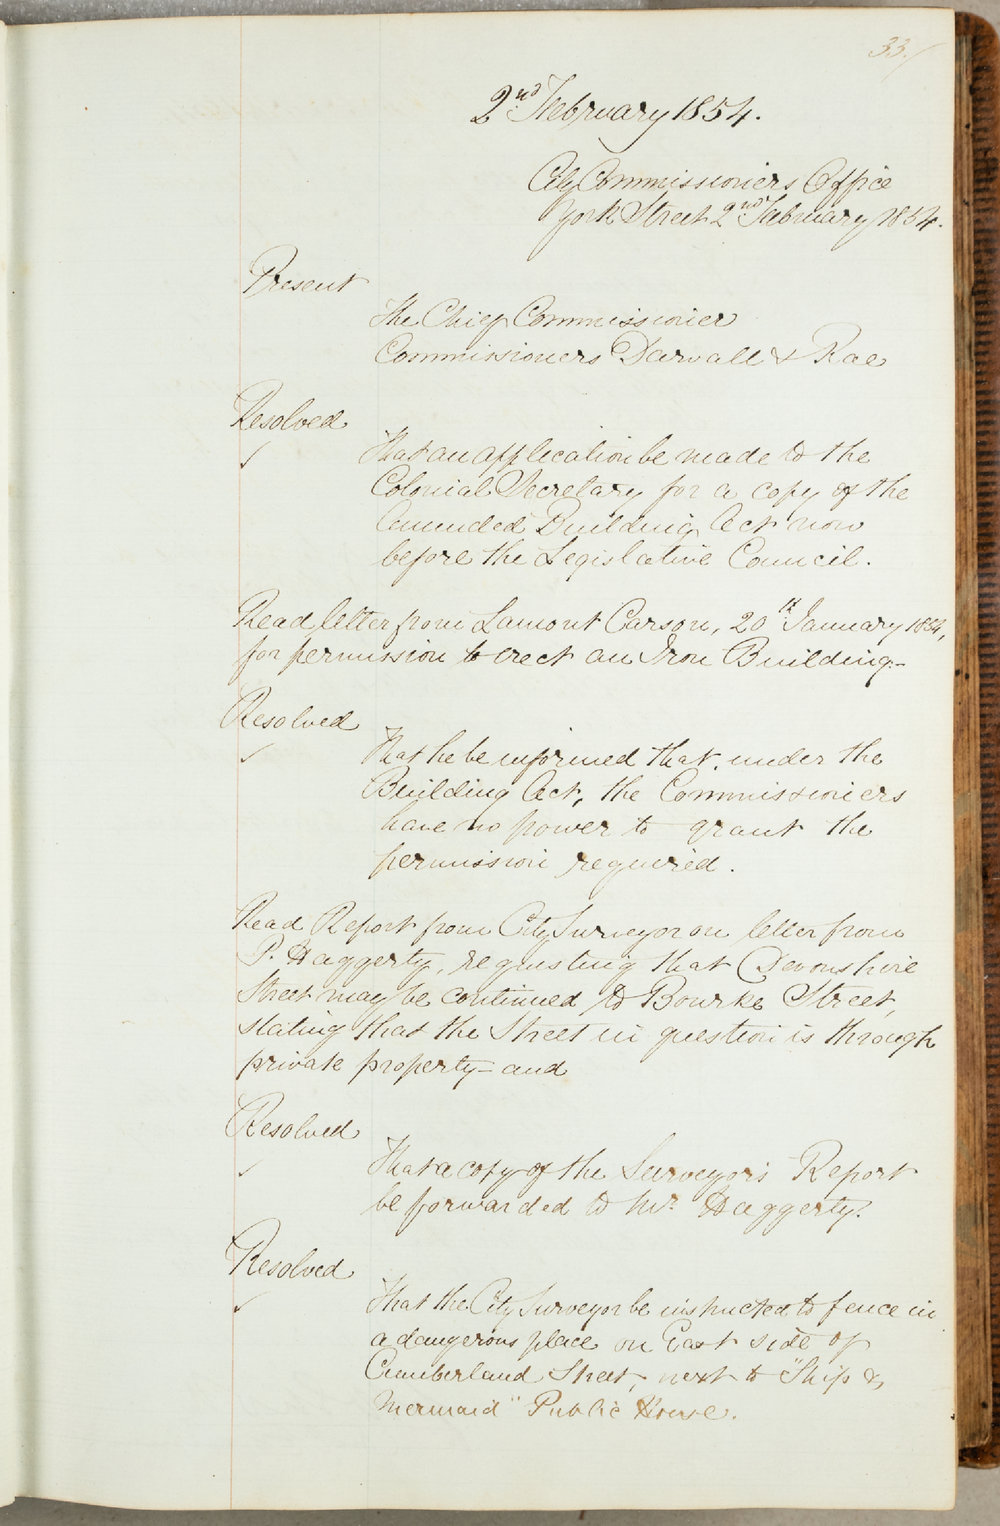 33.
2nd February 1854.
City Commissioners Office
York Street 2nd February 1854.
Present
The Chief Commissioner
Commissioners Darvall & Rae
Resolved
That an application be made to the
Colonial Secretary for a copy of the
Amended Building Act now
before the Legislative Council.
Read letter from Lamont Carson, 20th January 1854,
for permission to erect an Iron Building-
Resolved
That he be informed that, under the
Building Act, the Commissioners
have no power to grant the
permission required.
Read Report from City Surveyor on letter from
P. Haggerty, requesting that Devonshire
Street may be continued to Bourke Street,
stating that the Street in question is through
private property - and
Resolved
That a copy of the Surveyor's Report
be forwarded to Mr. Haggerty.
Resolved
That the City Surveyor be instructed to fence in
a dangerous place on East side of
Cumberland Street, next to "Ship &
Mermaid" Public House.